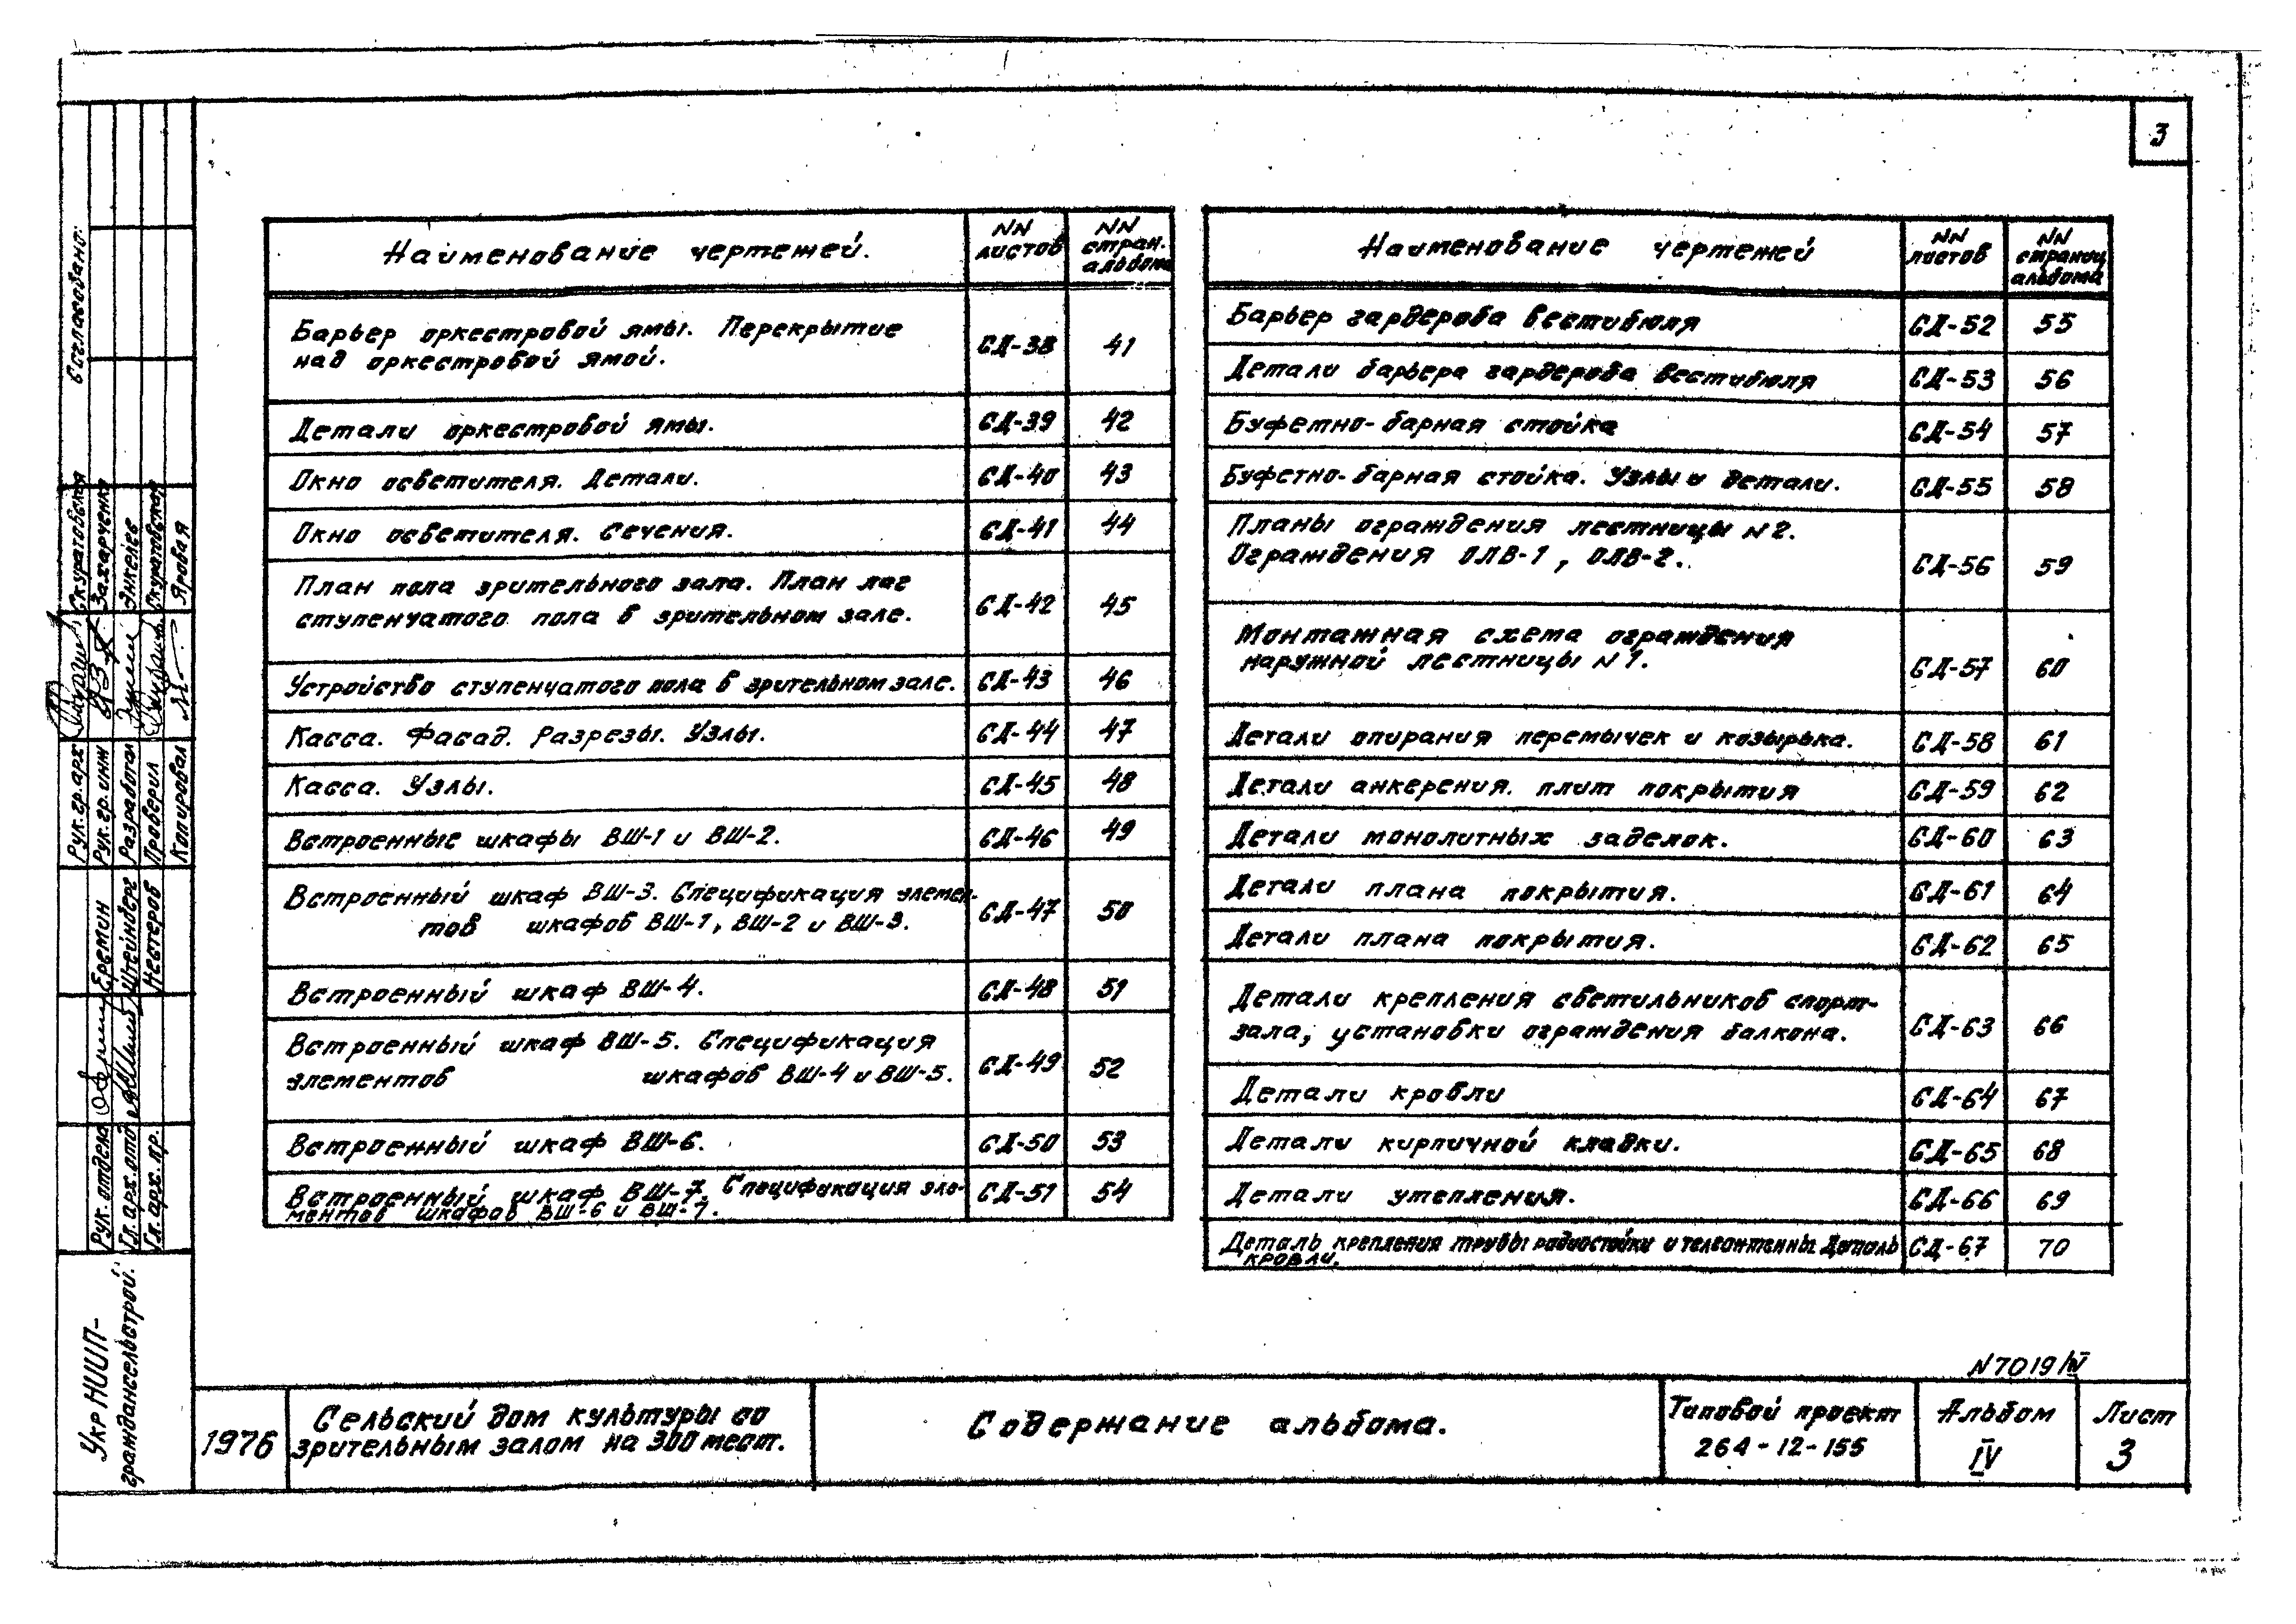 3
Наименование чертежей.
NN листов
NN стран. альбома
Барьер оркестровой ямы. Перекрытие
над оркестровой ямой.
СД-38
41
Детали оркестровой ямы.
СД-39
42
Окно осветителя. Детали.
СД-40
43
Окно осветителя. Сечения.
СД-41
44
План пола зрительного зала. План лаг
ступенчатого пола в зрительном зале.
СД-42
45
Устройство ступенчатого пола в зрительном зале.
СД-43
46
Касса. Фасад. Разрезы. Узлы.
СД-44
47
Касса. Узлы.
СД-45
48
Встроенные шкафы ВШ-1 и ВШ-2.
СД-46
49
Встроенный шкаф ВШ-3. Спецификация элемен-
тов шкафов ВШ-1, ВШ-2 и ВШ-3.
СД-47
50
Встроенный шкаф ВШ-4.
СД-48
51
Встроенный шкаф ВШ-5. Спецификация
элементов шкафов ВШ-4 и ВШ-5.
СД-49
52
Встроенный шкаф ВШ-6.
СД-50
53
Встроенный шкаф ВШ-7. Спецификация эле-
ментов шкафов ВШ-6 и ВШ-7.
СД-51
54
Наименование чертежей
NN листов
NN страниц альбома
Барьер гардероба вестибюля
СД-52
55
Детали барьера гардероба вестибюля
СД-53
56
Буфетно-барная стойка
СД-54
57
Буфетно-барная стойка. Узлы и детали.
СД-55
58
Планы ограждения лестницы N2.
Ограждения ОЛВ-1, ОЛВ-2.
СД-56
59
Монтажная схема ограждения
наружной лестницы N1.
СД-57
60
Детали опирания перемычек и козырька.
СД-58
61
Детали анкерения плит покрытия
СД-59
62
Детали монолитных заделок.
СД-60
63
Детали плана покрытия.
СД-61
64
Детали плана покрытия.
СД-62
65
Детали крепления светильников спорт-
зала, установки ограждения балкона.
СД-63
66
Детали кровли
СД-64
67
Детали кирпичной кладки.
СД-65
68
Детали утепления.
СД-66
69
Деталь крепления трубы радиостойки и телеантенны. Деталь
кровли.
СД-67
70
N7019/IV
1976
Сельский дом культуры со
зрительным залом на 300 мест.
Содержание альбома.
Типовой проект
264-12-155
Альбом
IV
Лист
3
Согласовано:
Рук.гр.арх Скуратовская
Рук.гр.инж Захарченко
Разработал Энгелев
Проверил Скуратовская
Копировал Яровая
Рук. отдела Еремин
Гл.арх.отд Штейнберг
Гл.арх.пр. Нестеров
Укр НИИП-
граждансельстрой.